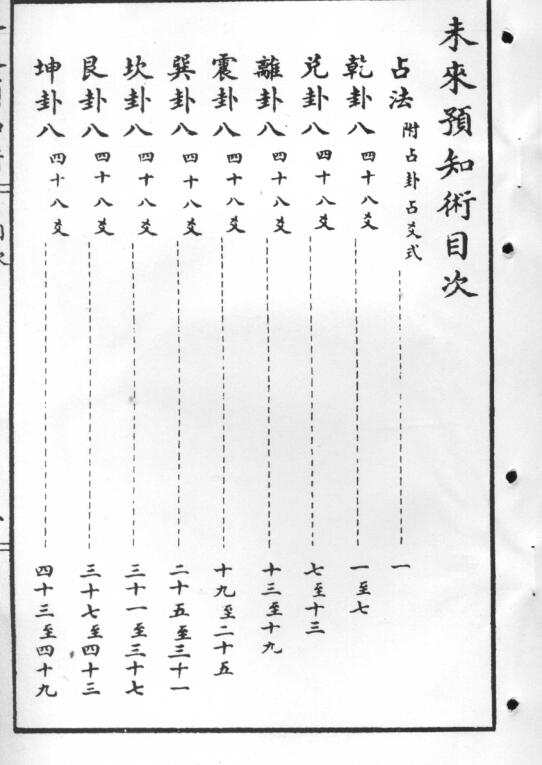 未來預知術目次
占法 附占卦占爻式 一
乾卦八 四十八爻 一至七
兌卦八 四十八爻 七至十三
離卦八 四十八爻 十三至十九
震卦八 四十八爻 十九至二十五
巽卦八 四十八爻 二十五至三十一
坎卦八 四十八爻 三十一至三十七
艮卦八 四十八爻 三十七至四十三
坤卦八 四十八爻 四十三至四十九